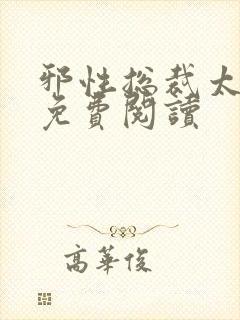 邪性总裁太
免費閱讀
高華俊